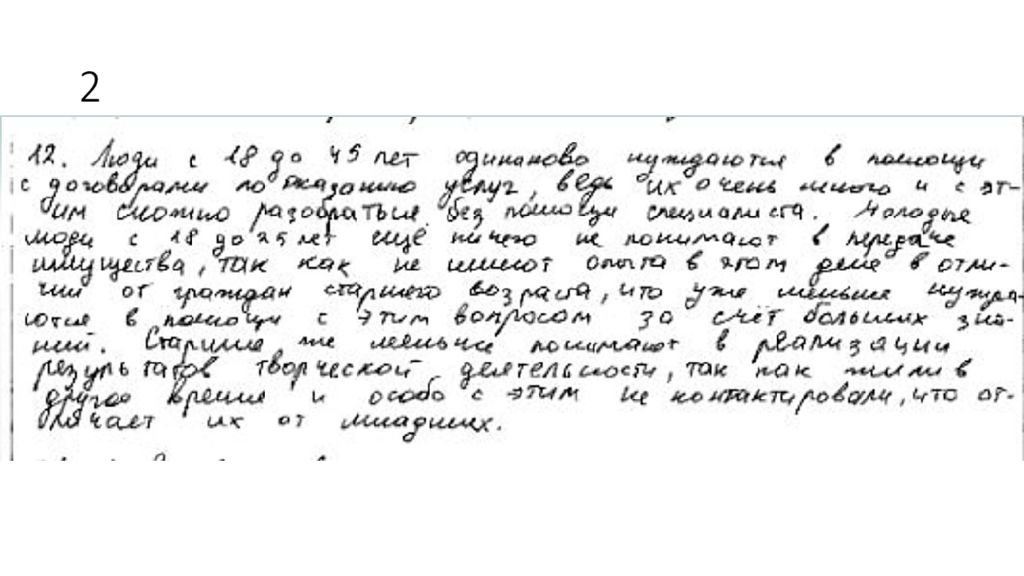 2
12. Люди с 18 до 45 лет одинаково нуждаются в помощи
с договорами по оказанию услуг, ведь их очень много и с эт-
им сложно разобраться без помощи специалиста. Молодые
люди с 18 до 25 лет ещё ничего не понимают в передаче
имущества, так как не имеют опыта в этом деле в отли-
чии от граждан старшего возраста, что уже меньше нужда-
ются в помощи с этим вопросом за счёт больших зна-
ний. Старшие же меньше понимают в реализации
результатов творческой деятельности, так как жили в
другое время и особо с этим не контактировали, что от-
личает их от младших.